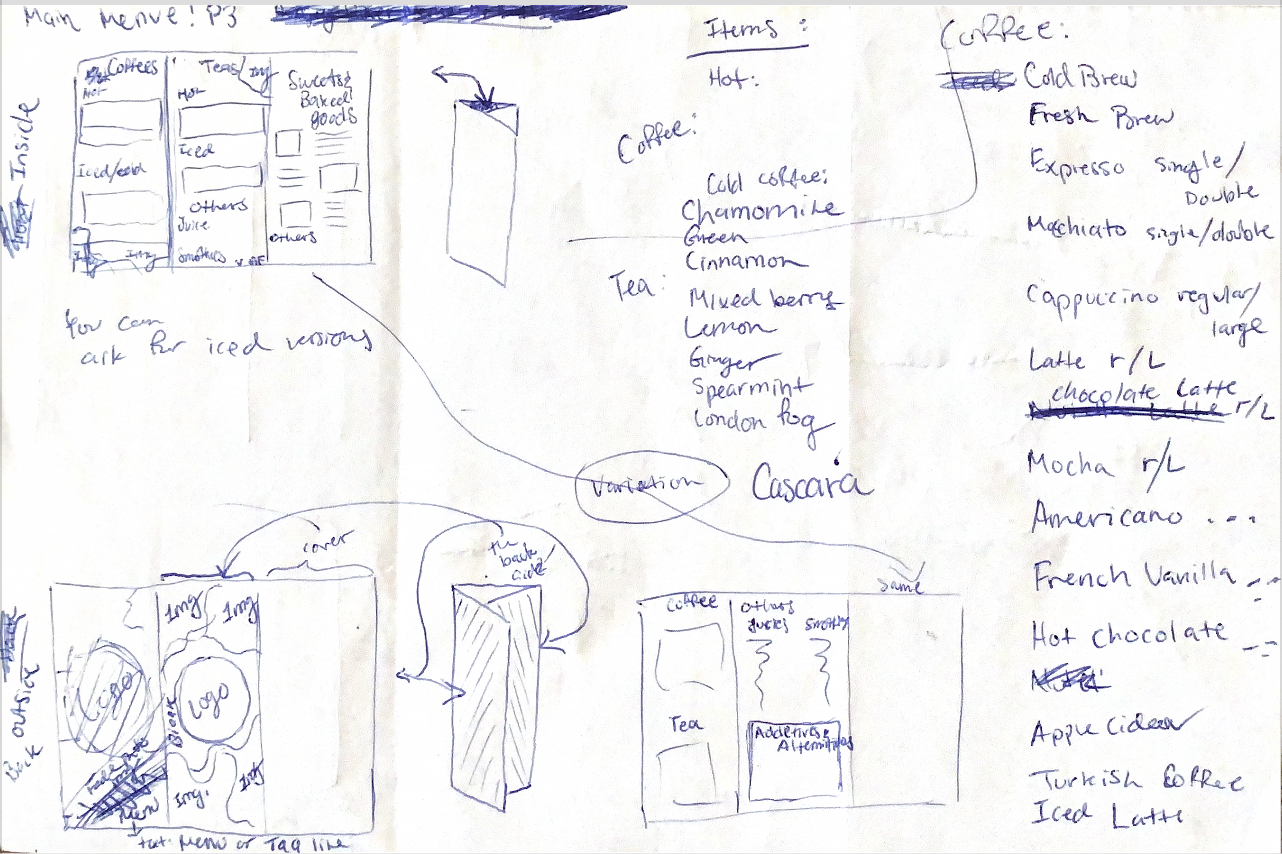 Main Menue! P3
Inside
Coffees
Hot
Iced/cold
Img
Teas/Img
Hot
Iced
Others
Juice
Smothies
Sweets &
Baked
goods
Others
You can
ask for iced versions
Items:
Hot:
Coffee:
Cold coffee:
Chamomile
Green
Cinnamon
Tea:
Mixed berry
Lemon
Ginger
Spearmint
London Fog
Variation
Cascara
Coffee:
Cold Brew
Fresh Brew
Expresso single/
Double
Machiato single/double
Cappuccino regular/
large
Latte r/L
chocolate Latte
r/L
Mocha r/L
Americano ---
French Vanilla ---
Hot chocolate ---
Apple Cider
Turkish Coffee
Iced Latte
Back outside
cover
Img
Img
Logo
Logo
Black
Img.
Img
Menu
txt: Menu or Tag line
the
back
side
same
Coffee
Tea
Others
Juices
Smothy
Additives &
Alternatives